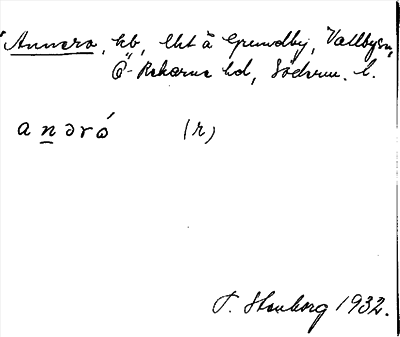 Annero, hb, lht å Grundby, Vallby sn,
Ö-Rekarne hd, Söderm. l.
anəró (r)
P. Stenborg 1932.